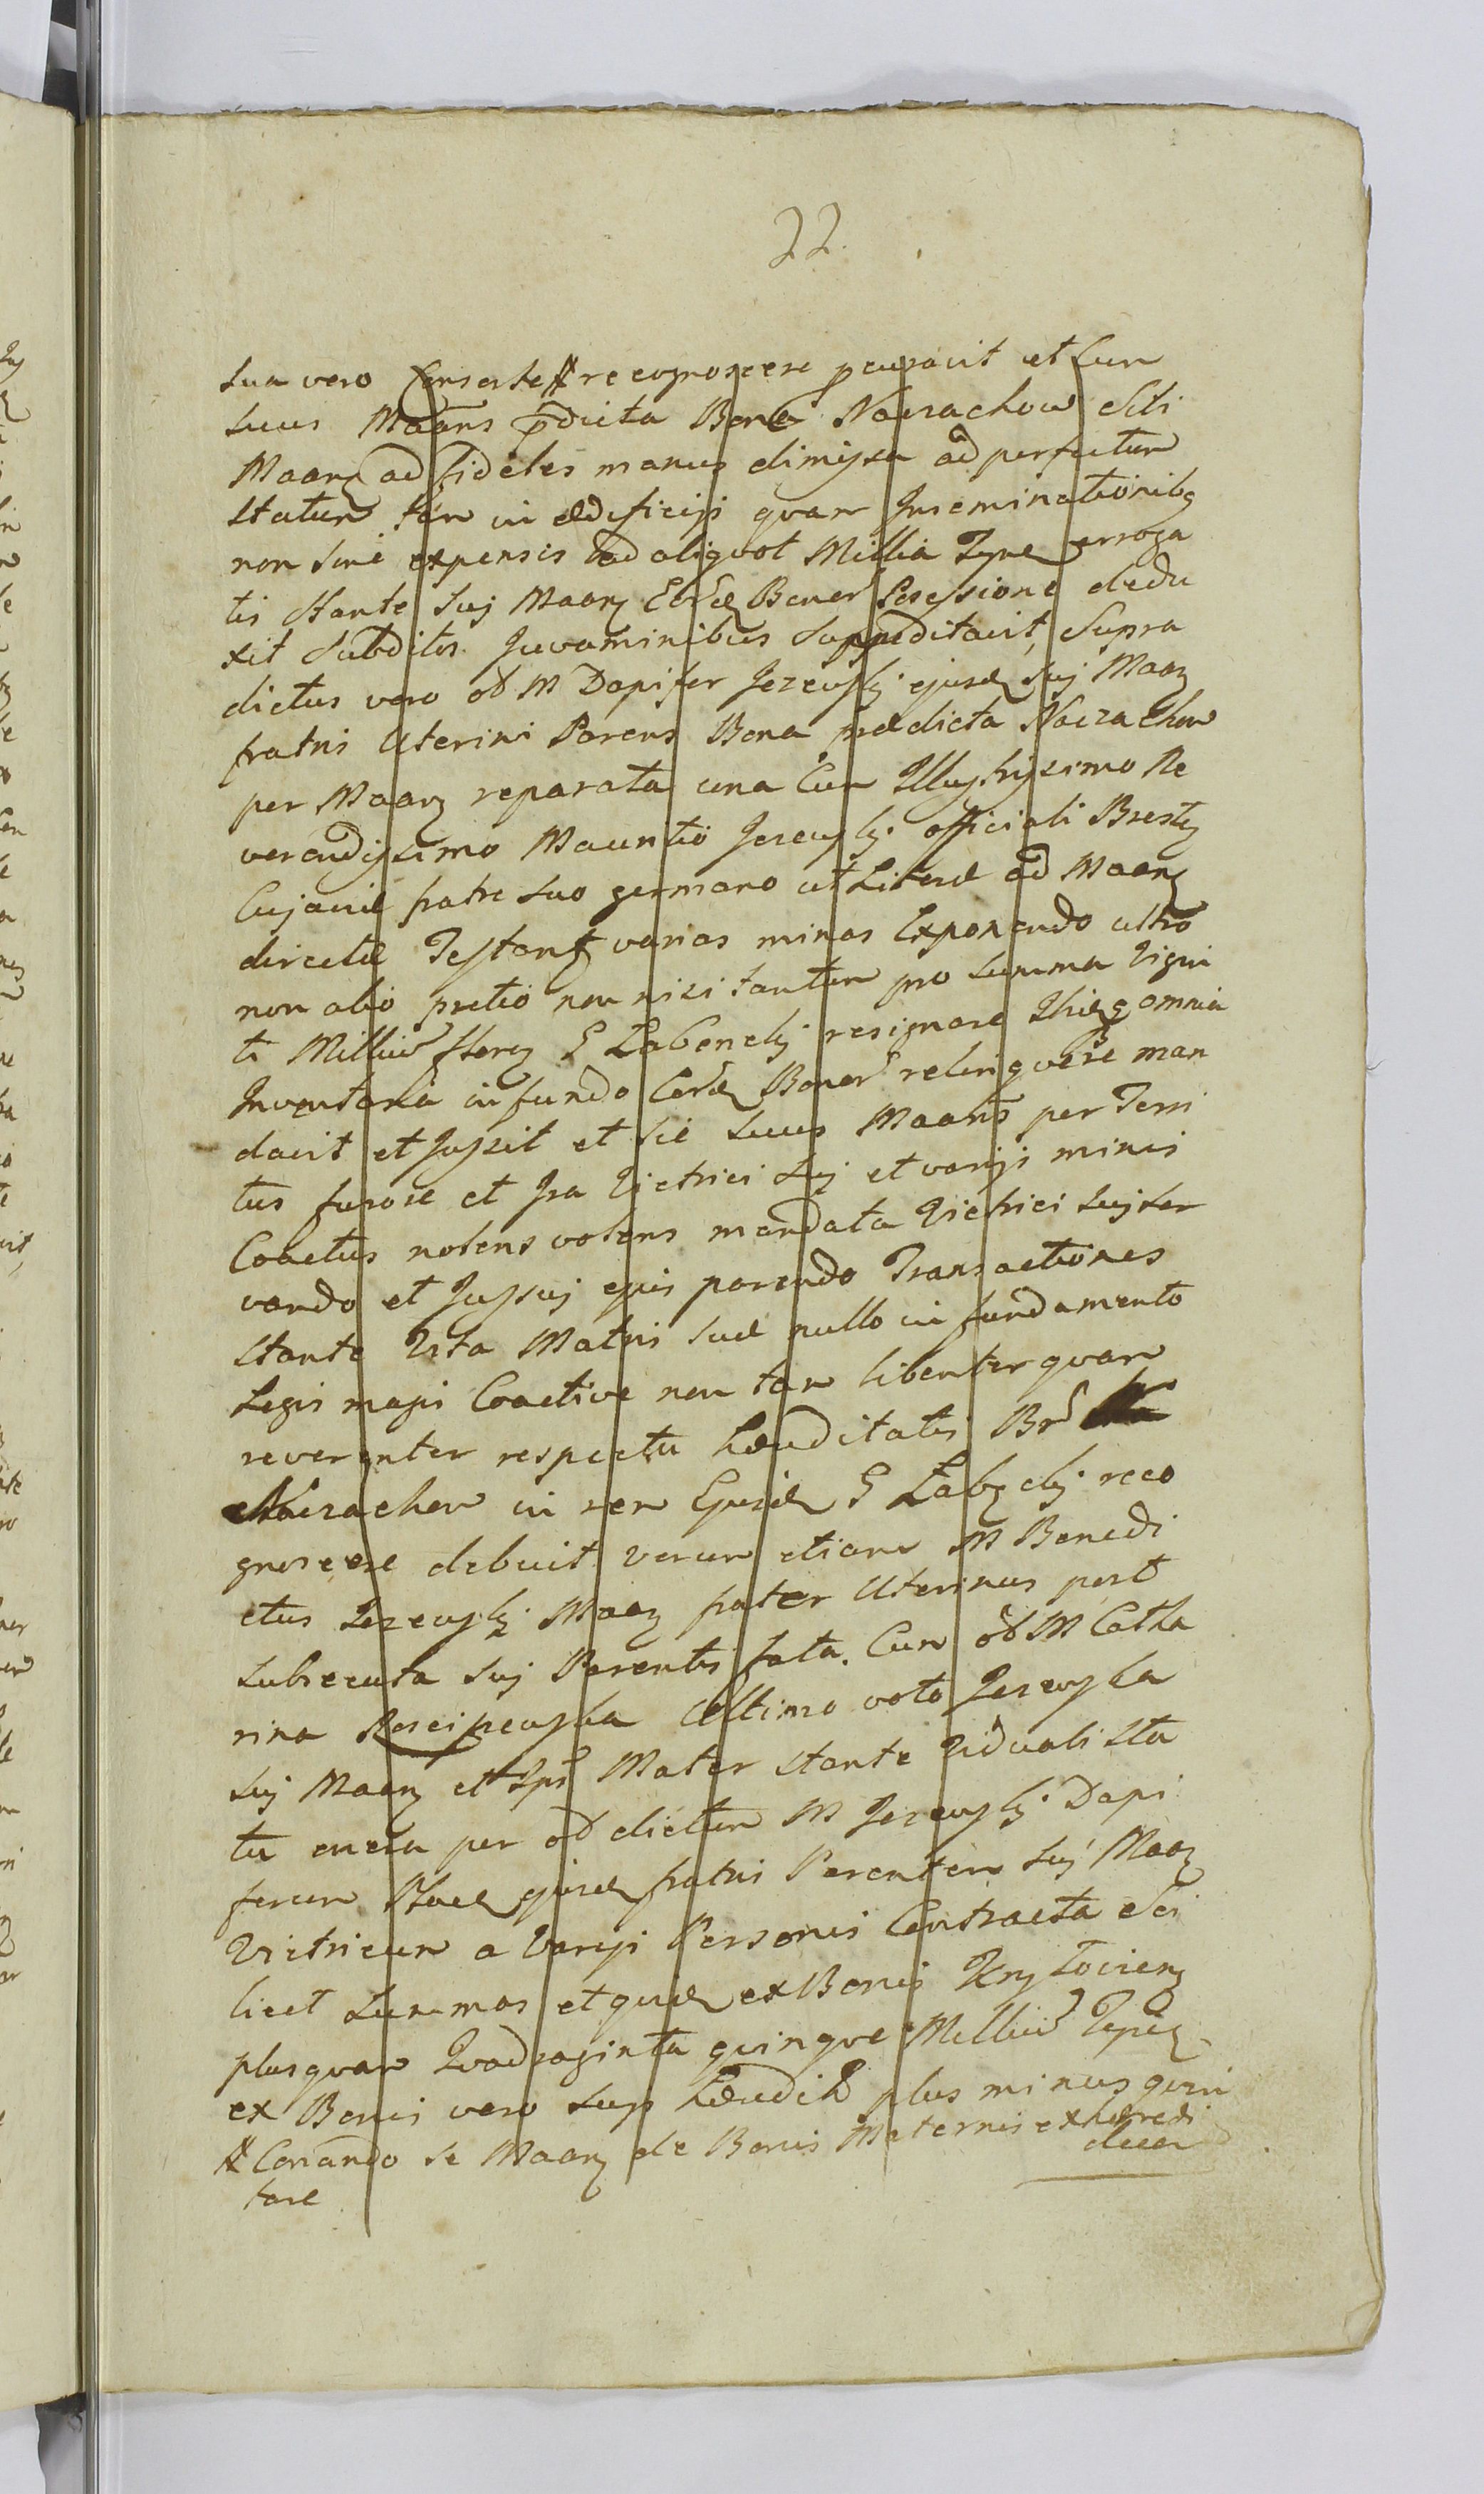 22.
sua vero Consorte # recognoscere procuravit et Cum
suus Maans p̃dicta Bona Naczachow Sibi
Maang ad fideles manus dimissa ad perfectum
statum tam in ædificijs quam Inseminationibg
non sine expensis ad aliquot Millia Tynf erroga
tis stante suj Maang Bonor Possessione dedu
xit Subditos Juvaminibus Suppeditavit, Supra
dictus vero od M Dapifer Jezewsky ejusd suj Maang
fratris Uterini Parens Bona prædicta Naczachow
per Maang reparata una Cum Illustrissimo Re
verendissimo Mauritio Jezewsky officiali Brestg
Cujaviæ fratre suo germano ut Literæ ad Maang
directæ Testant varias minas Exponendo ultro
non alio pretio non nisi tantum pro summa Vigin
ti Milliũ floreg G Labencky resignare omnia
Inventaria in fundo Bonor relinqvere man
davit et Jussit et sic suus Maans per Terri
tus furore et Ira Victrici suj et varijs minis
Coactus nolens volens mandata Victrici suj ser
vando et Jussuj ejus parendo Transactiones
stante Vita Matris suæ nullo in fundamento
Legis magis Coactive non tam libenter quam
reverenter respectu hæreditatis Br
Naczachow in rem Ejusd G Labcky reco
gnoscere debuit verum etiam M Benedi
ctus Jezewsky Maang frater Uterinus post
subsecuta suj Parentis fata. Cum od M Catha
rina Ultimo voto Jezewska
suj Maang et Ips Mater stante Viduali sta
tu onera per od dictum M Jezewsky Dapi
ferum ejusd fratris Parentem suj Maang
Victricum a Varijs Personis Contracta Sci
licet Summas et quid ex Bonis
plusquam Quadraginta quinque Milliũ
ex Bonis vero sup plus minus quin
decem
# Conando se Maang de Bonis Maternis exhæredi
tare